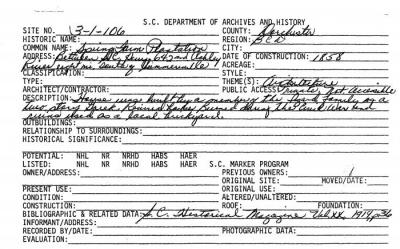 S.C. DEPARTMENT OF ARCHIVES AND HISTORY
SITE NO. 3-1-106 COUNTY: Dorchester
HISTORIC NAME: REGION: BCD
COMMON NAME: Spring Farm Plantation CITY:
ADDRESS: Between S.C. Hwy 642 and Ashley DATE OF CONSTRUCTION: 1858
River south of Summerville ACREAGE:
CLASSIFICATION: STYLE:
TYPE: THEME(S): Architecture
ARCHITECT/CONTRACTOR: PUBLIC ACCESS: Private, Not Accessible
DESCRIPTION: House was built by a member of the family as a
two story brick. Burned during the Civil War and
ruins used as a local brickyard.
OUTBUILDINGS:
RELATIONSHIP TO SURROUNDINGS:
HISTORICAL SIGNIFICANCE:
POTENTIAL: NHL NR NRHD HABS HAER S.C. MARKER PROGRAM
LISTED: NHL NR NRHD HABS HAER PREVIOUS OWNERS:
OWNER/ADDRESS: ORIGINAL SITE: MOVED/DATE:
PRESENT USE: ORIGINAL USE:
CONDITION: ALTERED/UNALTERED:
CONSTRUCTION: ROOF: FOUNDATION:
BIBLIOGRAPHIC & RELATED DATA: S.C. Historical Magazine Vol XX, 1919, p36
INFORMANT/ADDRESS:
RECORDED BY/DATE: PHOTOGRAPHIC DATA:
EVALUATION: